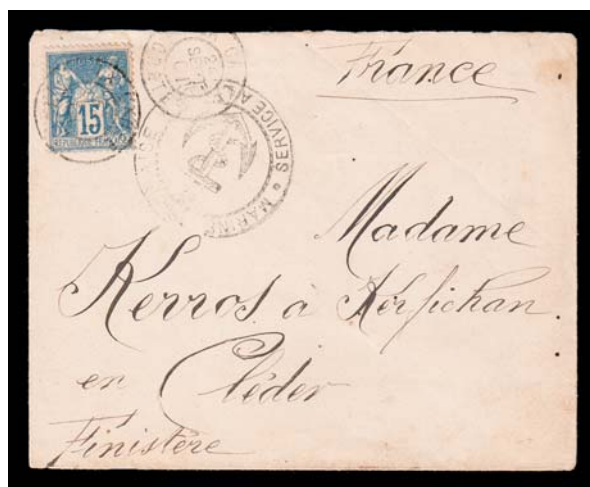 15
RÉPUBLIQUE FRANÇAISE
MARINE
SERVICE À LA MER
France
Madame
Kerros à Kerfichan
en Cléder
Finistère